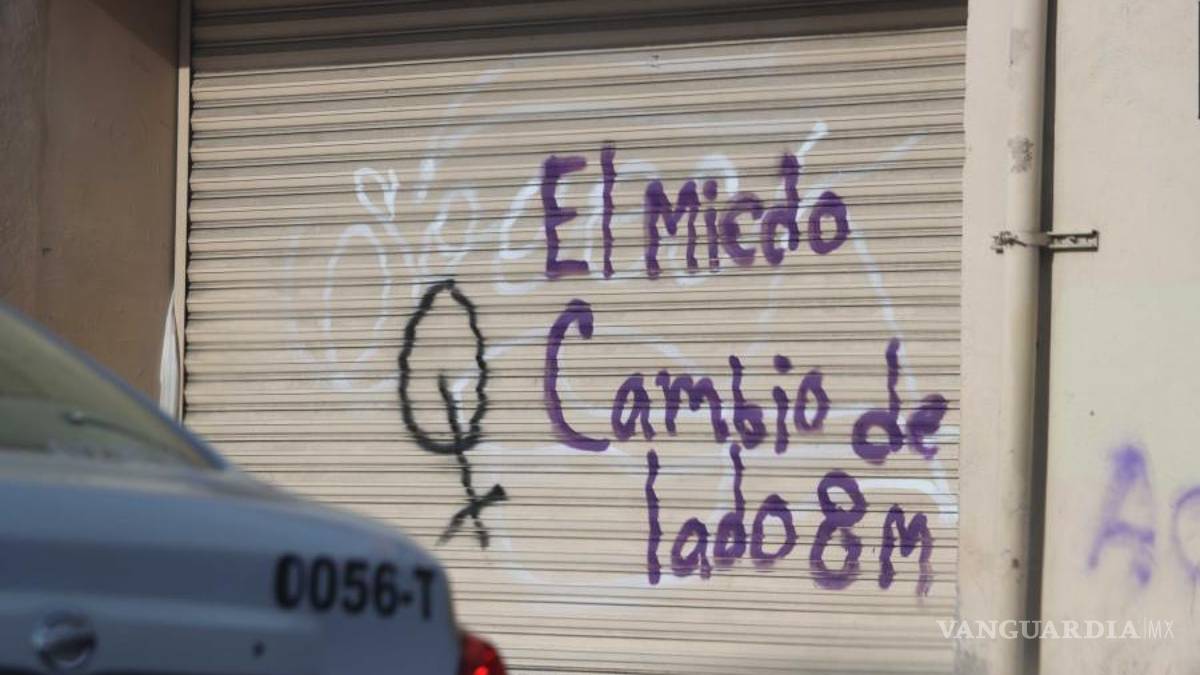 El Miedo
Cambio de
lado 8m
0056-T
VANGUARDIA|MX